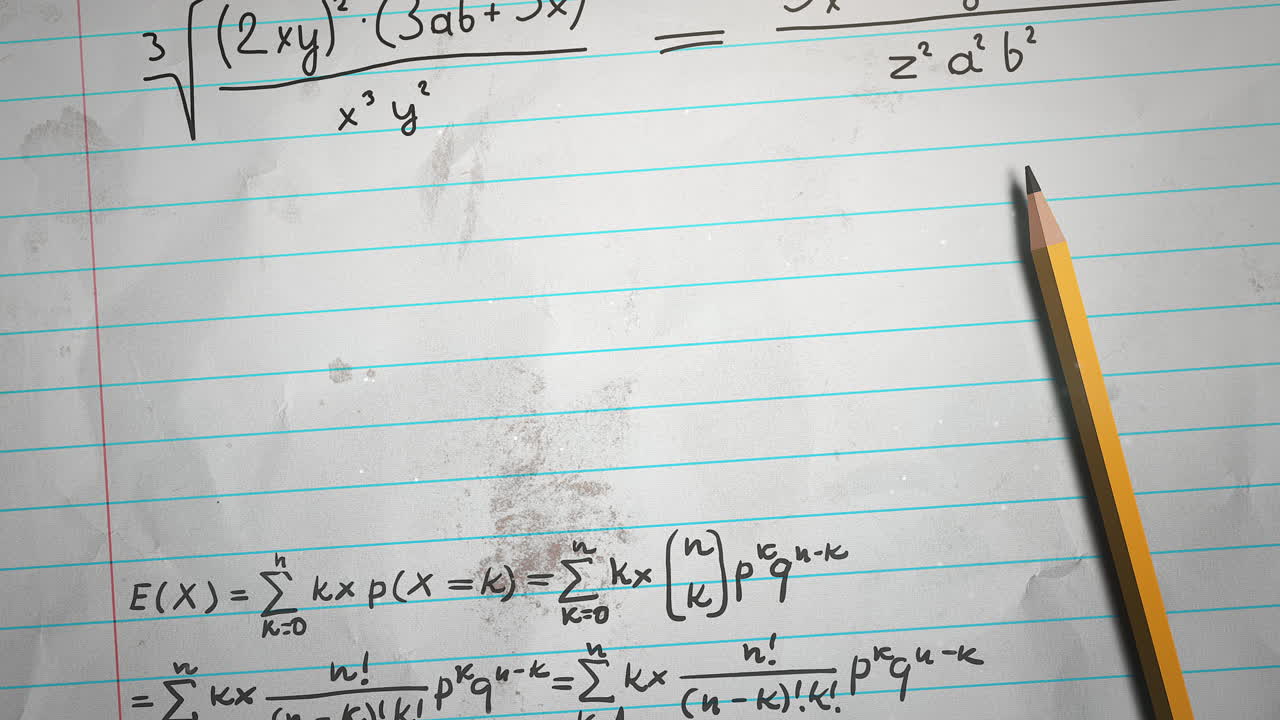 ∛((2xy)²·(3ab+3x) / x³y²) = / z²a²b²
E(X) = ∑ₖ₌₀ⁿ kx p(X=k) = ∑ₖ₌₀ⁿ kx (n k) pᵏqⁿ⁻ᵏ
= ∑ⁿ kx n!/(n-k)!k! pᵏqⁿ⁻ᵏ = ∑ⁿ kx n!/(n-k)!k! pᵏqⁿ⁻ᵏ